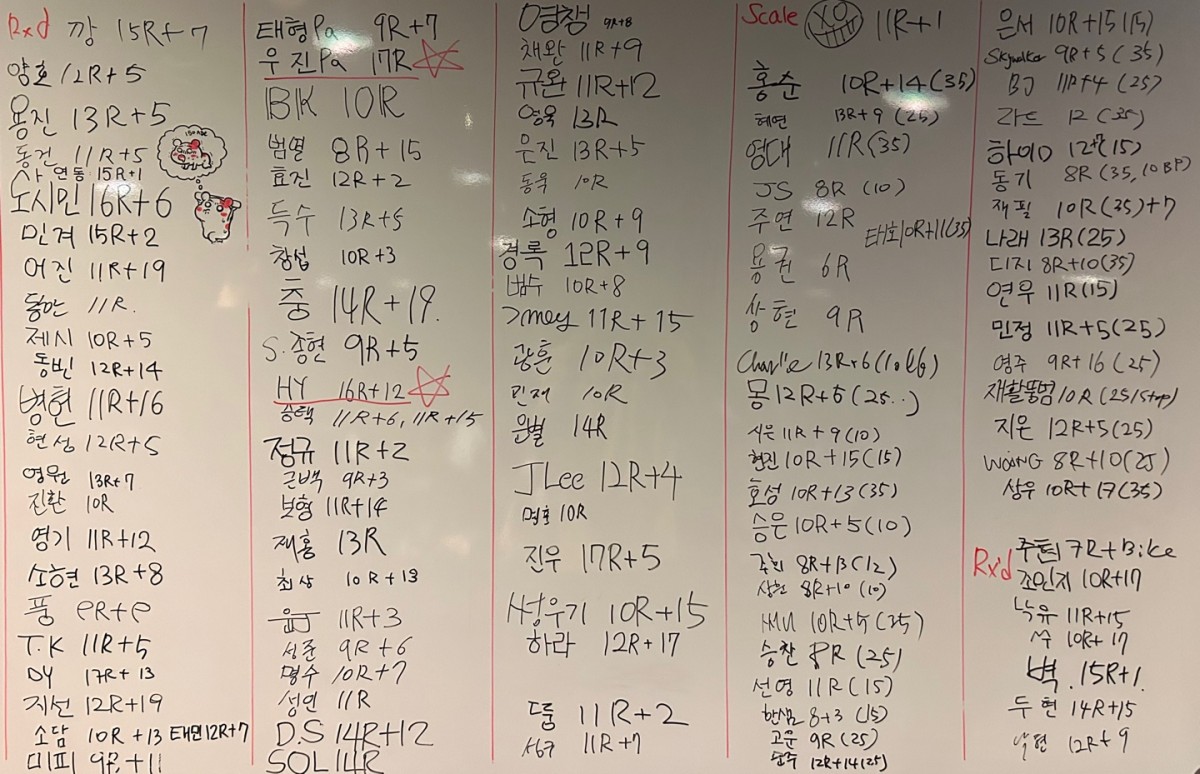 Rx'd 깡 15R+7
양호 12R+5
용진 13R+5
동건 11R+5
사 연동 15R+1
도시민 16R+6
민겨 15R+2
어진 11R+19
돌만 11R.
제시 10R+5
동빈 12R+14
병현 11R+16
현성 12R+5
영원 13R+7
진환 10R
영기 11R+12
소현 13R+8
풍
T.K 11R+5
DY 17R+13
지선 12R+19
소담 10R+13 태민 12R+7
미피 9R+11
태형Pa 9R+7
우진Pa 17R
BK 10R
범열 8R+15
효진 12R+2
득수 13R+5
창섭 10R+3
중 14R+19.
S.종현 9R+5
HY 16R+12
승택 11R+6, 11R+15
정규 11R+2
근백 9R+3
보형 11R+14
재홍 13R
최상 10R+13
11R+3
서준 9R+6
명수 10R+7
성연 11R
D.S 14R+12
SOL 14R
영챙 9R+8
채완 11R+9
규완 11R+12
영욱 13R
은진 13R+5
동욱 10R
소형 10R+9
경록 12R+9
범수 10R+8
Jmey 11R+15
광훈 10R+3
민재 10R
은별 14R
JLee 12R+4
명호 10R
진우 17R+5
성우기 10R+15
하라 12R+17
둠 11R+2
11R+7
Scale XOXO 11R+1
홍준 10R+14(35)
혜연 13R+9 (25)
영대 11R(35)
JS 8R (10)
주연 12R
태호 10R+11(35)
용권 6R
상현 9R
Charlie 13R+6(10lb)
몽 12R+5(25..)
시은 11R+9(10)
현진 10R+15(15)
호성 10R+13(35)
승은 10R+5(10)
8R+13(12)
상현 8R+10(10)
10R+5(25)
승찬 8R (25)
선영 11R(15)
한샘 8+3 (15)
고운 9R(25)
12R+14(25)
은서 10R+15(15)
Skywalker 9R+5(35)
BJ 11R+4(25)
라드 12(35)
하이D 12(15)
동기 8R(35, 10BP)
재필 10R(35)+7
나래 13R(25)
디지 8R+10(35)
연우 11R(15)
민정 11R+5(25)
영주 9R+16(25)
재활뚱범 10R(25/Step)
지온 12R+5(25)
WOONG 8R+10(25)
상우 10R+17(35)
Rx'd 7R+Bike
조민지 10R+17
녹유 11R+15
10R+17
벽. 15R+1.
두현 14R+15
12R+9